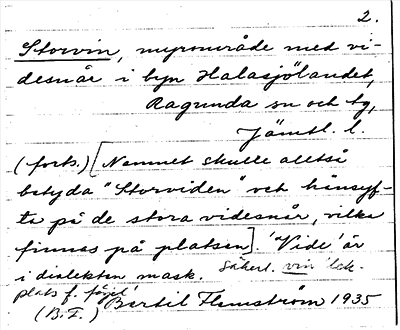 2.
Storvin, myrområde med vi-
desnår i byn Halasjölandet,
Ragunda sn och tg,
Jämtl. l.
(forts.) [Namnet skulle alltså
betyda "Storviden" och hänsyf-
ta på de stora videsnår, vilka
finnas på platsen]. 'Vide' är
i dialekten mask. Säkerl. vin 'lek-
plats f. fågel'
(B.F.) Bertil Flemström 1935